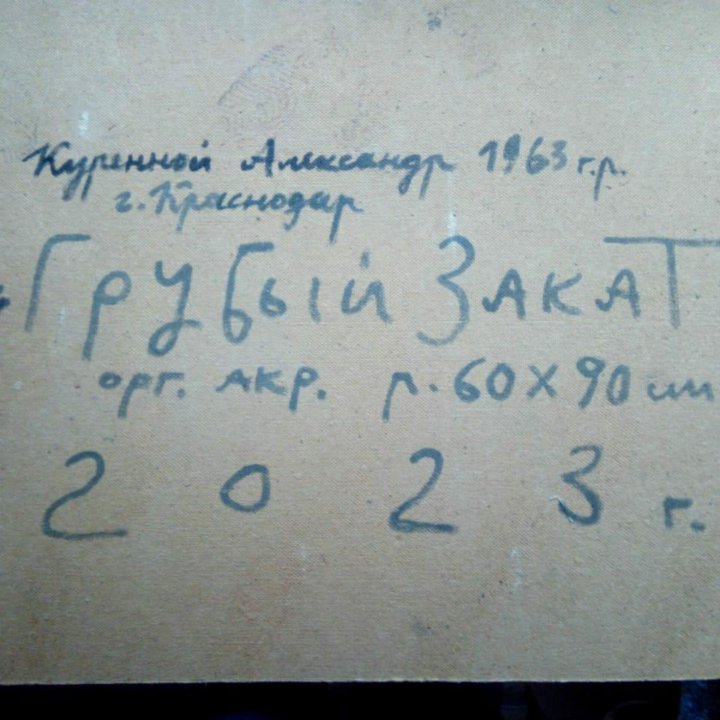 Куренной Александр 1963 г.р.
г. Краснодар
"ГРУБЫЙ ЗАКАТ
орг. акр. р. 60 X 90 см
2023 г.